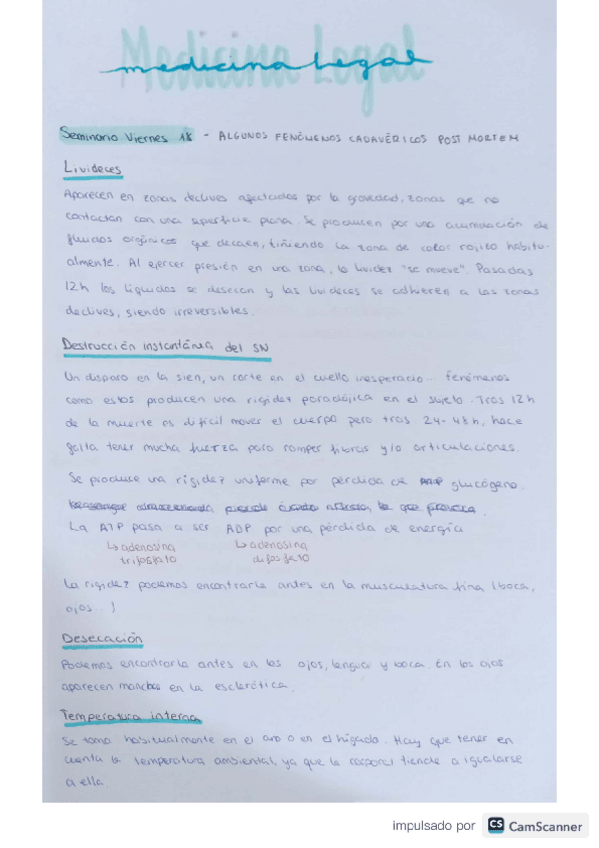 Medicina Legal
medicina legal
Seminario Viernes 18 - ALGUNOS FENÓMENOS CADAVÉRICOS POST MORTEM
Livideces
Aparecen en zonas declives afectadas por la gravedad, zonas que no
contactan con una superficie plana. Se producen por una acumulación de
fluidos orgánicos que decaen, tiñiendo la zona de color rojizo habitu-
almente. Al ejercer presión en una zona, la lividez "se mueve". Pasadas
12h los líquidos se desecan y las livideces se adhieren a las zonas
declives, siendo irreversibles.
Destrucción instantánea del SN
Un disparo en la sien, un corte en el cuello inesperado... fenómenos
como estos producen una rigidez paradójica en el sujeto. Tras 12h
de la muerte es difícil mover el cuerpo pero tras 24-48h, hace
falta tener mucha fuerza para romper fibras y/o articulaciones.
Se produce una rigidez uniforme por pérdida de glucógeno.
La ATP pasa a ser ADP por una pérdida de energía
↳ adenosina ↳ adenosina
trifosfato difosfato
La rigidez podemos encontrarla antes en la musculatura fina (boca,
ojos...)
Desecación
Podemos encontrarla antes en los ojos, lengua y boca. En los ojos
aparecen manchas en la esclerótica.
Temperatura interna
Se toma habitualmente en el ano o en el hígado. Hay que tener en
cuenta la temperatura ambiental, ya que la corporal tiende a igualarse
a ella
impulsado por CS CamScanner